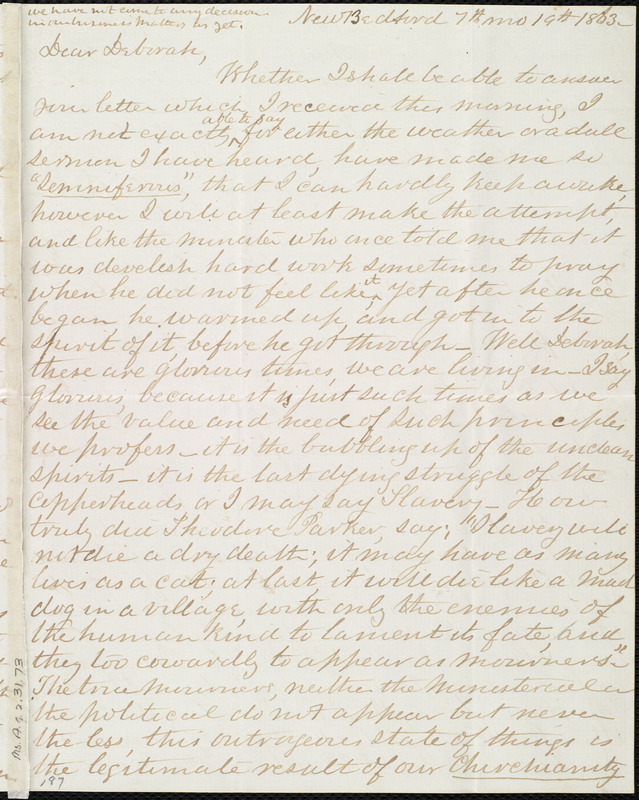 we have not come to any decision
in our business matters as yet.
New Bedford 7th mo 19th 1863-
Dear Deborah,
Whether I shall be able to answer
your letter which I received this morning, I
am not exactly able to say, for either the weather or a dull
sermon I have heard, have made me so
"Semniferous", that I can hardly keep awake,
however I will at least make the attempt,
and like the minister who once told me that it
was develish hard work sometimes to pray
when he did not feel like it, yet after he once
began, he warmed up, and got in to the
spirit of it, before he got through - Well Deborah,
these are glorious times we are living in - I say
glorious, because it is just such times as we
see the value and need of such principles
we profess - it is the bubbling up of the unclean
spirits - it is the last dying struggle of the
Copperheads or I may say Slavery - How
truly did Theodore Parker, say; "Slavery will
not die a dry death; it may have as many
lives as a cat; at last, it will die like a mad
dog in a village, with only the enemies of
the human kind to lament its fate, and
they too cowardly to appear as mourners"-
The true mourners, neither the Ministerial or
the political do not appear but never
the less, this outrageous state of things is
the legitimate result of our Churchianity
Ms. A. 9. 2. 31, 73
187